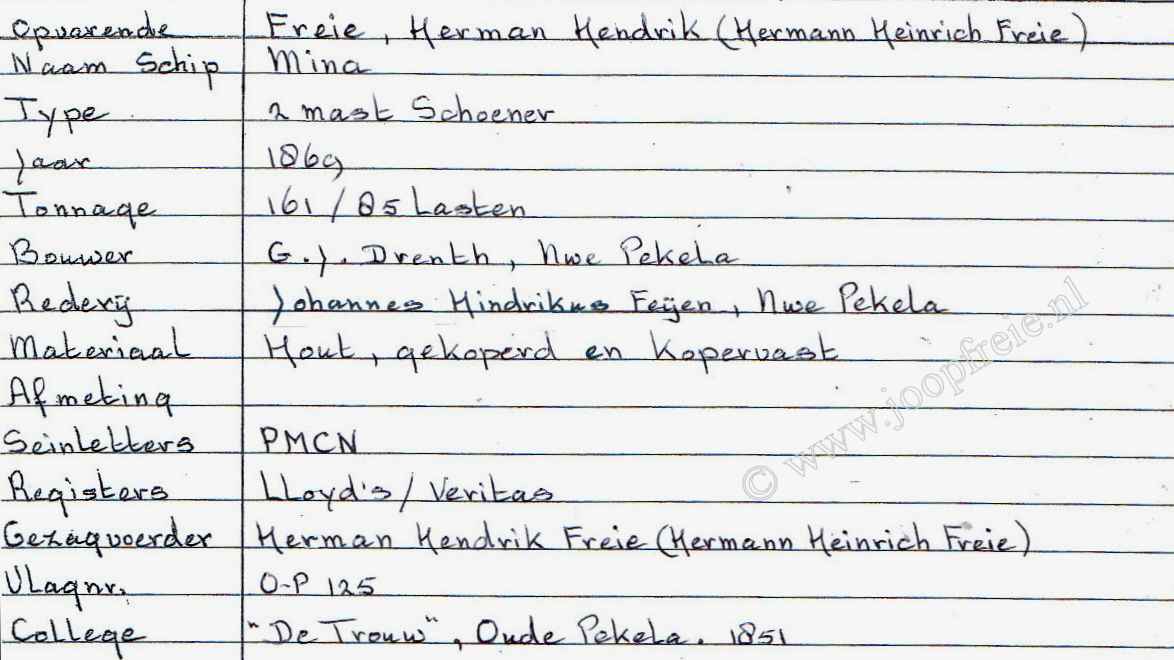 Opvarende Freie, Herman Hendrik (Hermann Heinrich Freie)
Naam Schip Mina
Type 2 mast Schoener
Jaar 1869
Tonnage 161 / 85 Lasten
Bouwer G.J. Drenth, Nwe Pekela
Rederij Johannes Hindrikus Feijen, Nwe Pekela
Materiaal Hout, gekoperd en kopervast
Afmeting
Seinletters PMCN
Registers Lloyd's / Veritas
Gezagvoerder Herman Hendrik Freie (Hermann Heinrich Freie)
Vlagnr. O-P 125
College "De Trouw", Oude Pekela. 1851
© www.joopfreie.nl